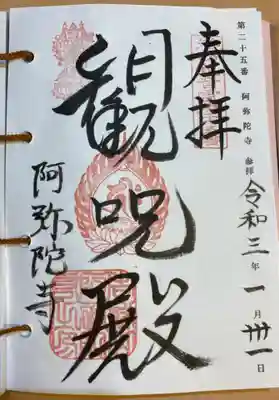 第二十五番 阿弥陀寺 参拝 令和三年一月卅一日
奉拝
観咒殿
阿弥陀寺